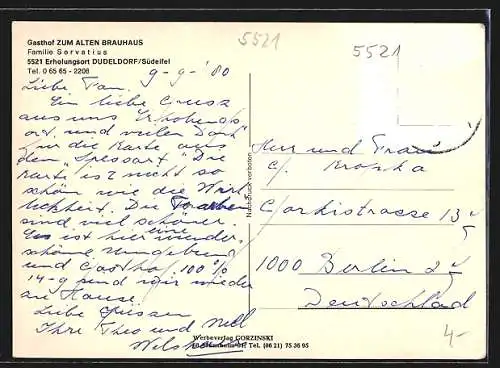 Gasthof ZUM ALTEN BRAUHAUS
Familie Servatius
5521 Erholungsort DUDELDORF/Südeifel
Tel. 0 65 65 - 2208
5521
5521
9-9-'80
Liebe Fam.
Ein liebe Gruss
aus uns Erholends
ort. und vielen Dank
für die Karte aus
den "Spessart" Die
Karte is 2 nicht so
schön wie die Wirk
lichkeit. Die Farben
sind viel schöner.
Es ist hier eine wunder
schöne Umgebung
und Gasthof 100%
14-9 send wir wieder
an Hause.
Liebe Grüssen
Ihre Theo und Nell
Nachdruck verboten
Herr und Frau
C.
Gorkistrasse 13
1000 Berlin 27
Deutschlad
4-
Werbeverlag GORZINSKI
Tel. (06 21) 75 36 95